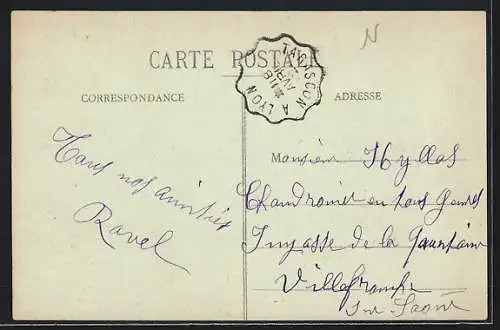 N
CARTE POSTALE
TARASCON A LYON
CORRESPONDANCE
ADRESSE
Tous nos amitiés
Ravel
Monsieur Hyllas
Chaudronier en tous genres
Impasse de la Fountaine
Villefranche
sur Saone